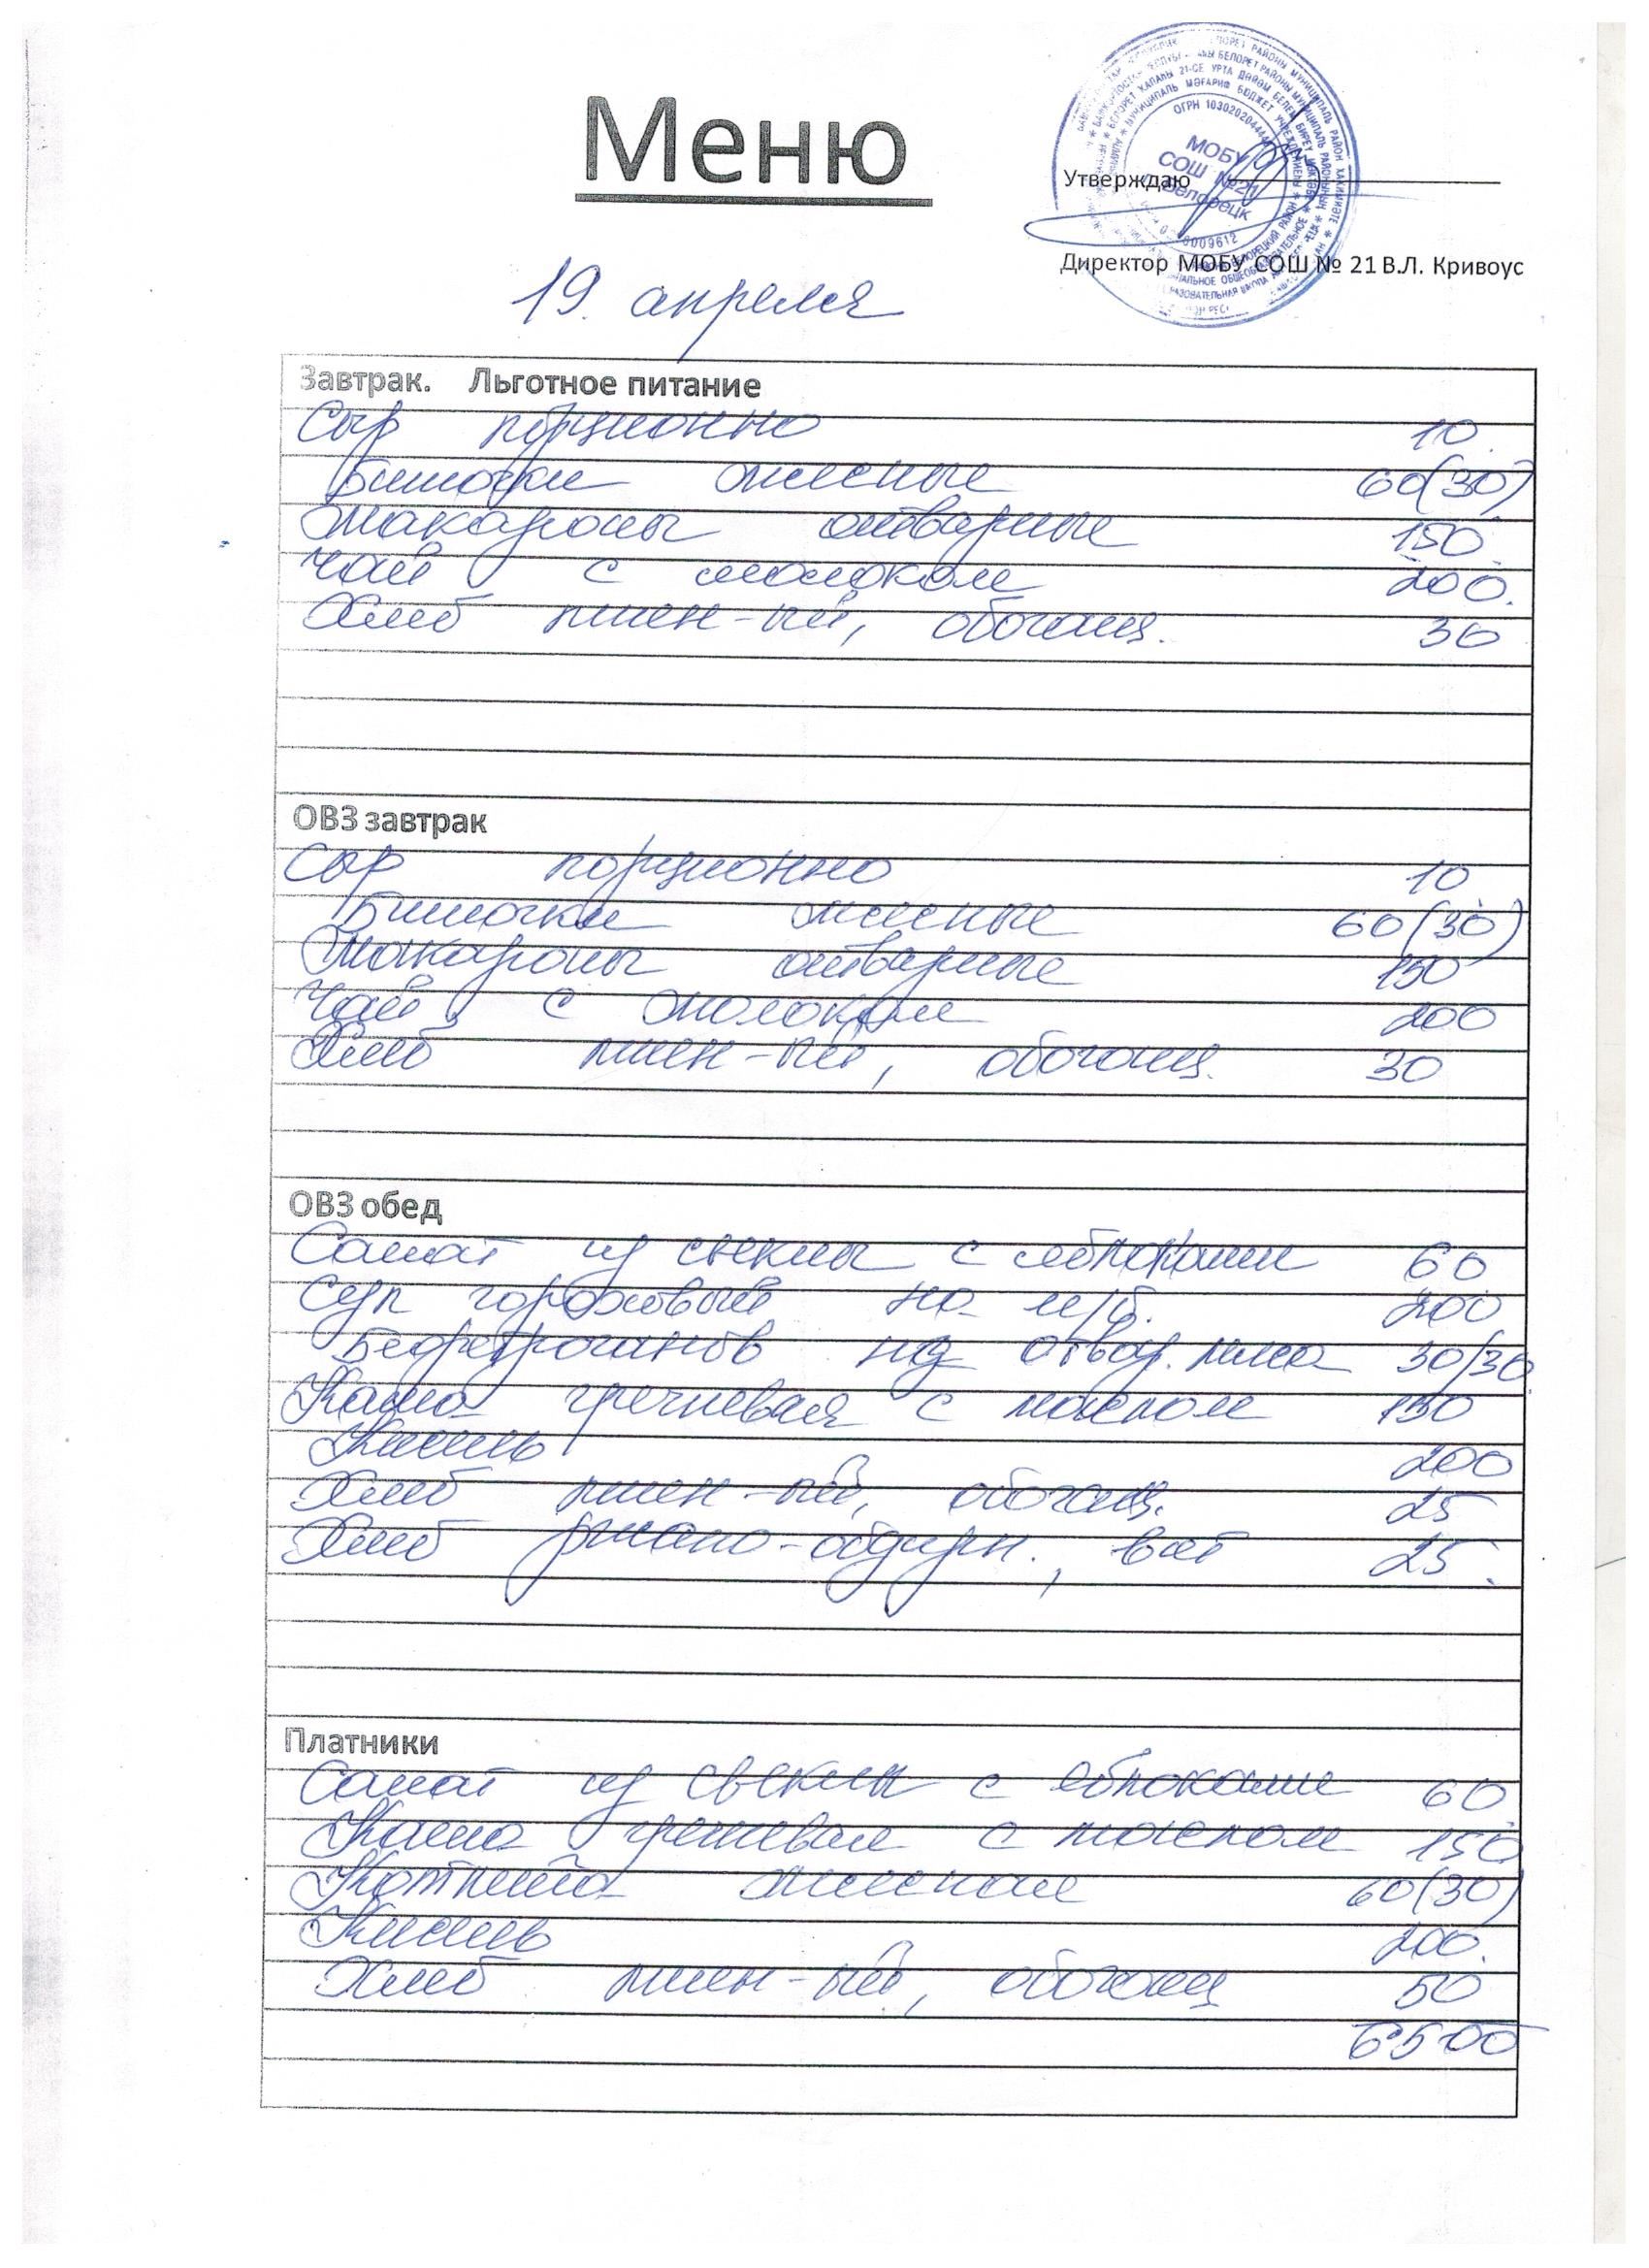 Меню
Утверждаю
МОБУ
СОШ №21
г. Белорецк
Директор МОБУ СОШ № 21 В.Л. Кривоус
19. апреля
Завтрак. Льготное питание
Сыр порционно 10.
Биточки мясные 60(30)
Макароны отварные 150
Чай с молоком 200.
Хлеб пшен-ый, обогащ. 30
ОВЗ завтрак
Сыр порционно 10
Биточки мясные 60(30)
Макароны отварные 150
Чай с молоком 200
Хлеб пшен-ый, обогащ. 30
ОВЗ обед
Салат из свеклы с яблоками 60
Суп гороховый на м/б. 200
Бефстроганов из отвар. мяса 30/30
Каша гречневая с маслом 150
Кисель 200
Хлеб пшен-ый, обогащ. 25
Хлеб ржано-обдирн., 25.
Платники
Салат из свеклы с яблоками 60
Каша гречневая с маслом 150
Котлета мясная 60(30)
Кисель 200.
Хлеб пшен-ый, обогащ 50
6500